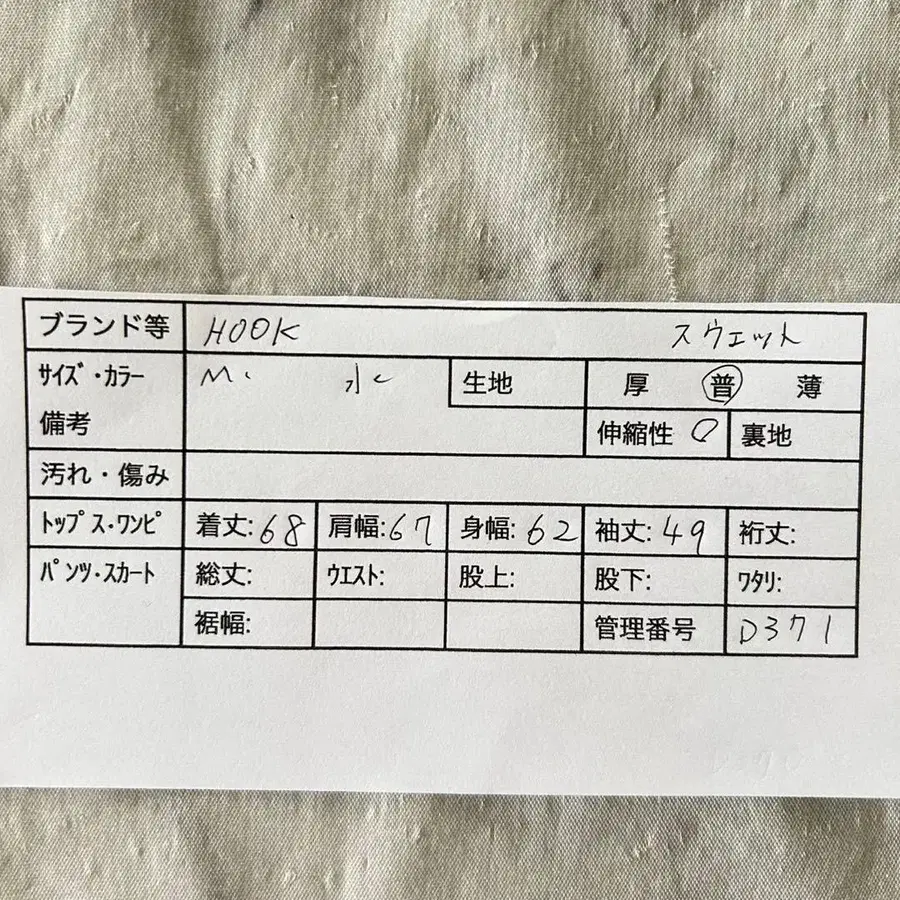 ブランド等 HOOK スウェット
サイズ・カラー M 水 生地 厚 普 薄
備考 伸縮性 〇 裏地
汚れ・傷み
トップス・ワンピ 着丈:68 肩幅:67 身幅:62 袖丈:49 裄丈:
パンツ・スカート 総丈: ウエスト: 股上: 股下: ワタリ:
裾幅: 管理番号 D371